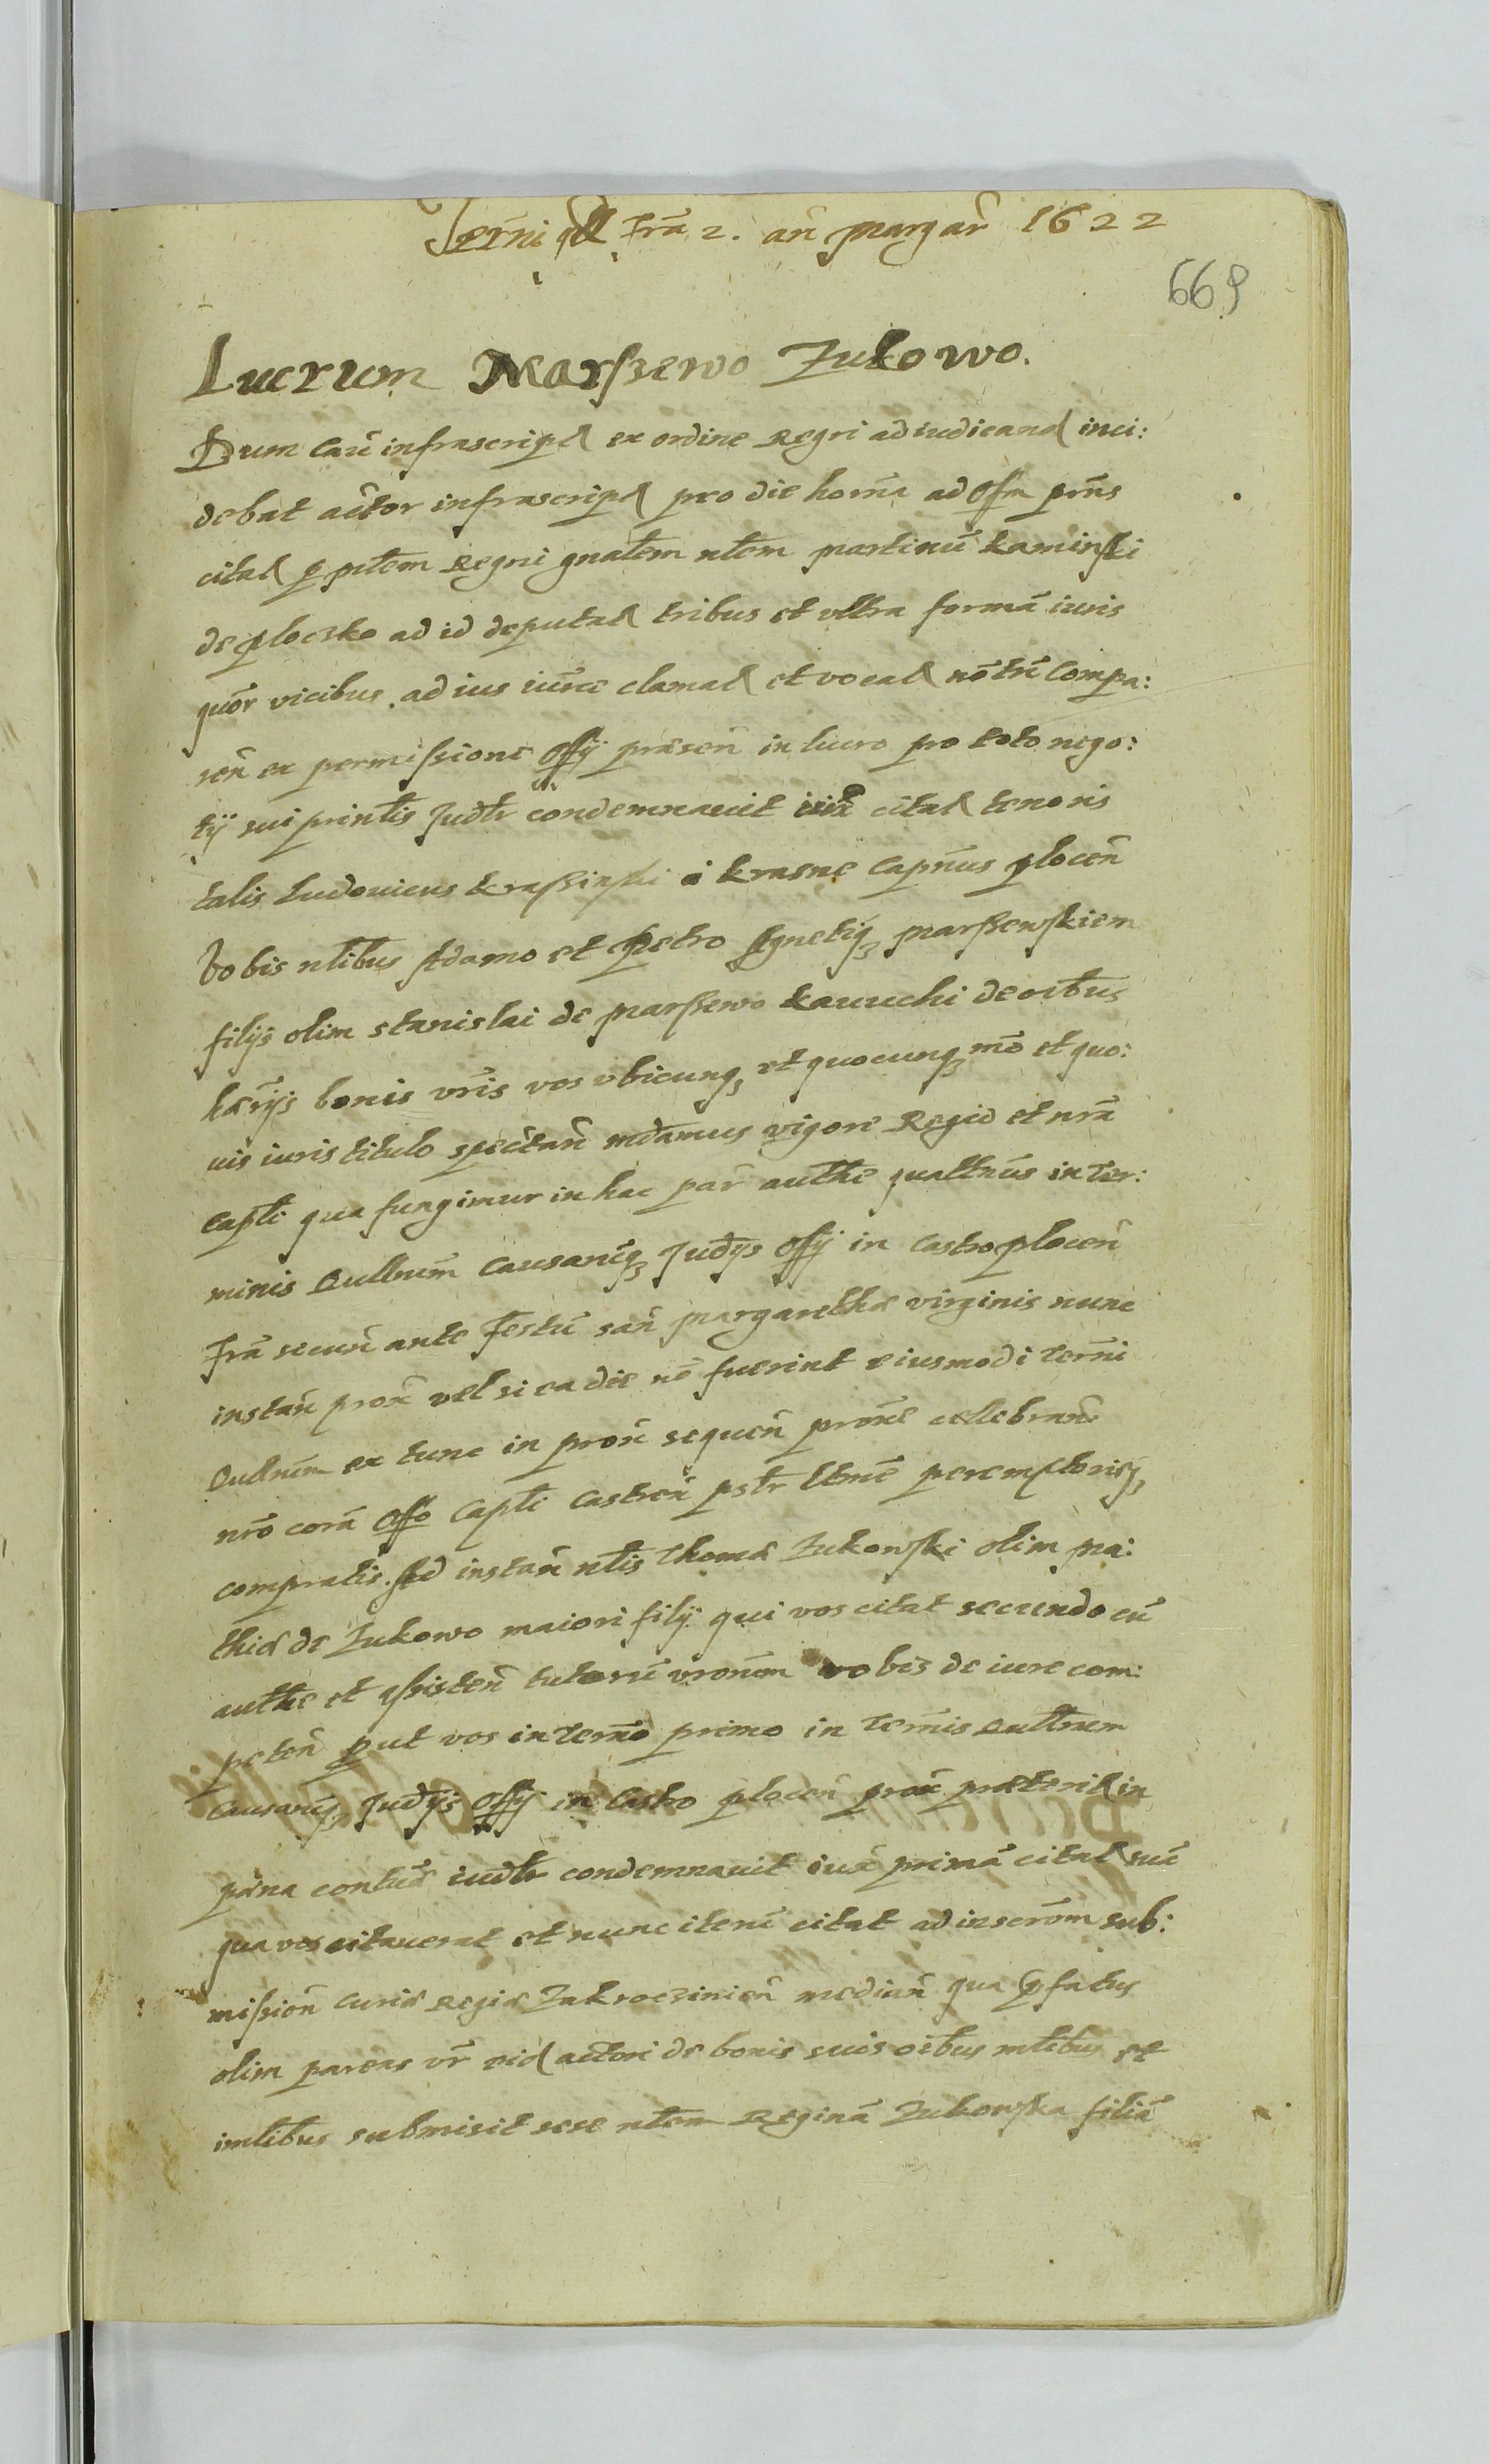 Termi qll Fra 2. an Margar 1622
669
Lucrum Marszewo Zukowo.
Dum Cau infrascript ex ordine Regri adiudicand inci:
debat actor infrascript pro die horna ad Offm prns
citat p mtem Regni gnalem nlem Martinu Kaminski
de Ploczko ad id deputat tribus et vltra forma iuris
quor vicibus ad ius iurce clamat et vocat no tn Compa:
ren ex permissione Offy præsen in lucro pro toto nego:
tÿ sui printlis Judlr condemnauit iux citat tenoris
talis Ludouicus Krassinski a Krasne Capnus Plocen
Vobis nlibus Adamo et Petro Agnetiq Marszewskiem
filijs olim Stanislai de Marszewo Kawuchi de oibus
hærijs bonis vris vos vbicunq et quocunq mo et quo:
uis iuris titulo spectan mdamus vigore Regio et nra
Capli qua fungimur in hac par authe qualtnus in Ter:
minis Qullrum Causaruq Judÿs Offÿ in Castro Plocen
Fra secun ante Festu san Margarethæ virginis nunc
instan prox vel si ea die no fuerint eiusmodi Terni
Qullrum ex tunc in prox sequen prone cellebran
nro cora Offo Capli Castren pslr ltme peremptorieq
compratis. Ad instan nlis Thomæ Zukowski olim Ma:
thiæ de Zukowo maiori filÿ qui vos citat secundo cu
authe et assisten tutoru vrorum vobis de iure com:
peten put vos in Termo primo in Ternis Qullrum
Causaruq Judÿs Offÿ in Castro Plocen prox præterit in
pæna contuæ iudlr condemnauit iux prima citat sua
qua vos citauerat et nunc iteru citat ad inscrom sub:
mission Curiæ Regiæ Zakroczimien median qua pfatus
olim parens vr eid actori de bonis suis oibus mlibus et
imlibus submisit sese nlem Regina Zukowska filia